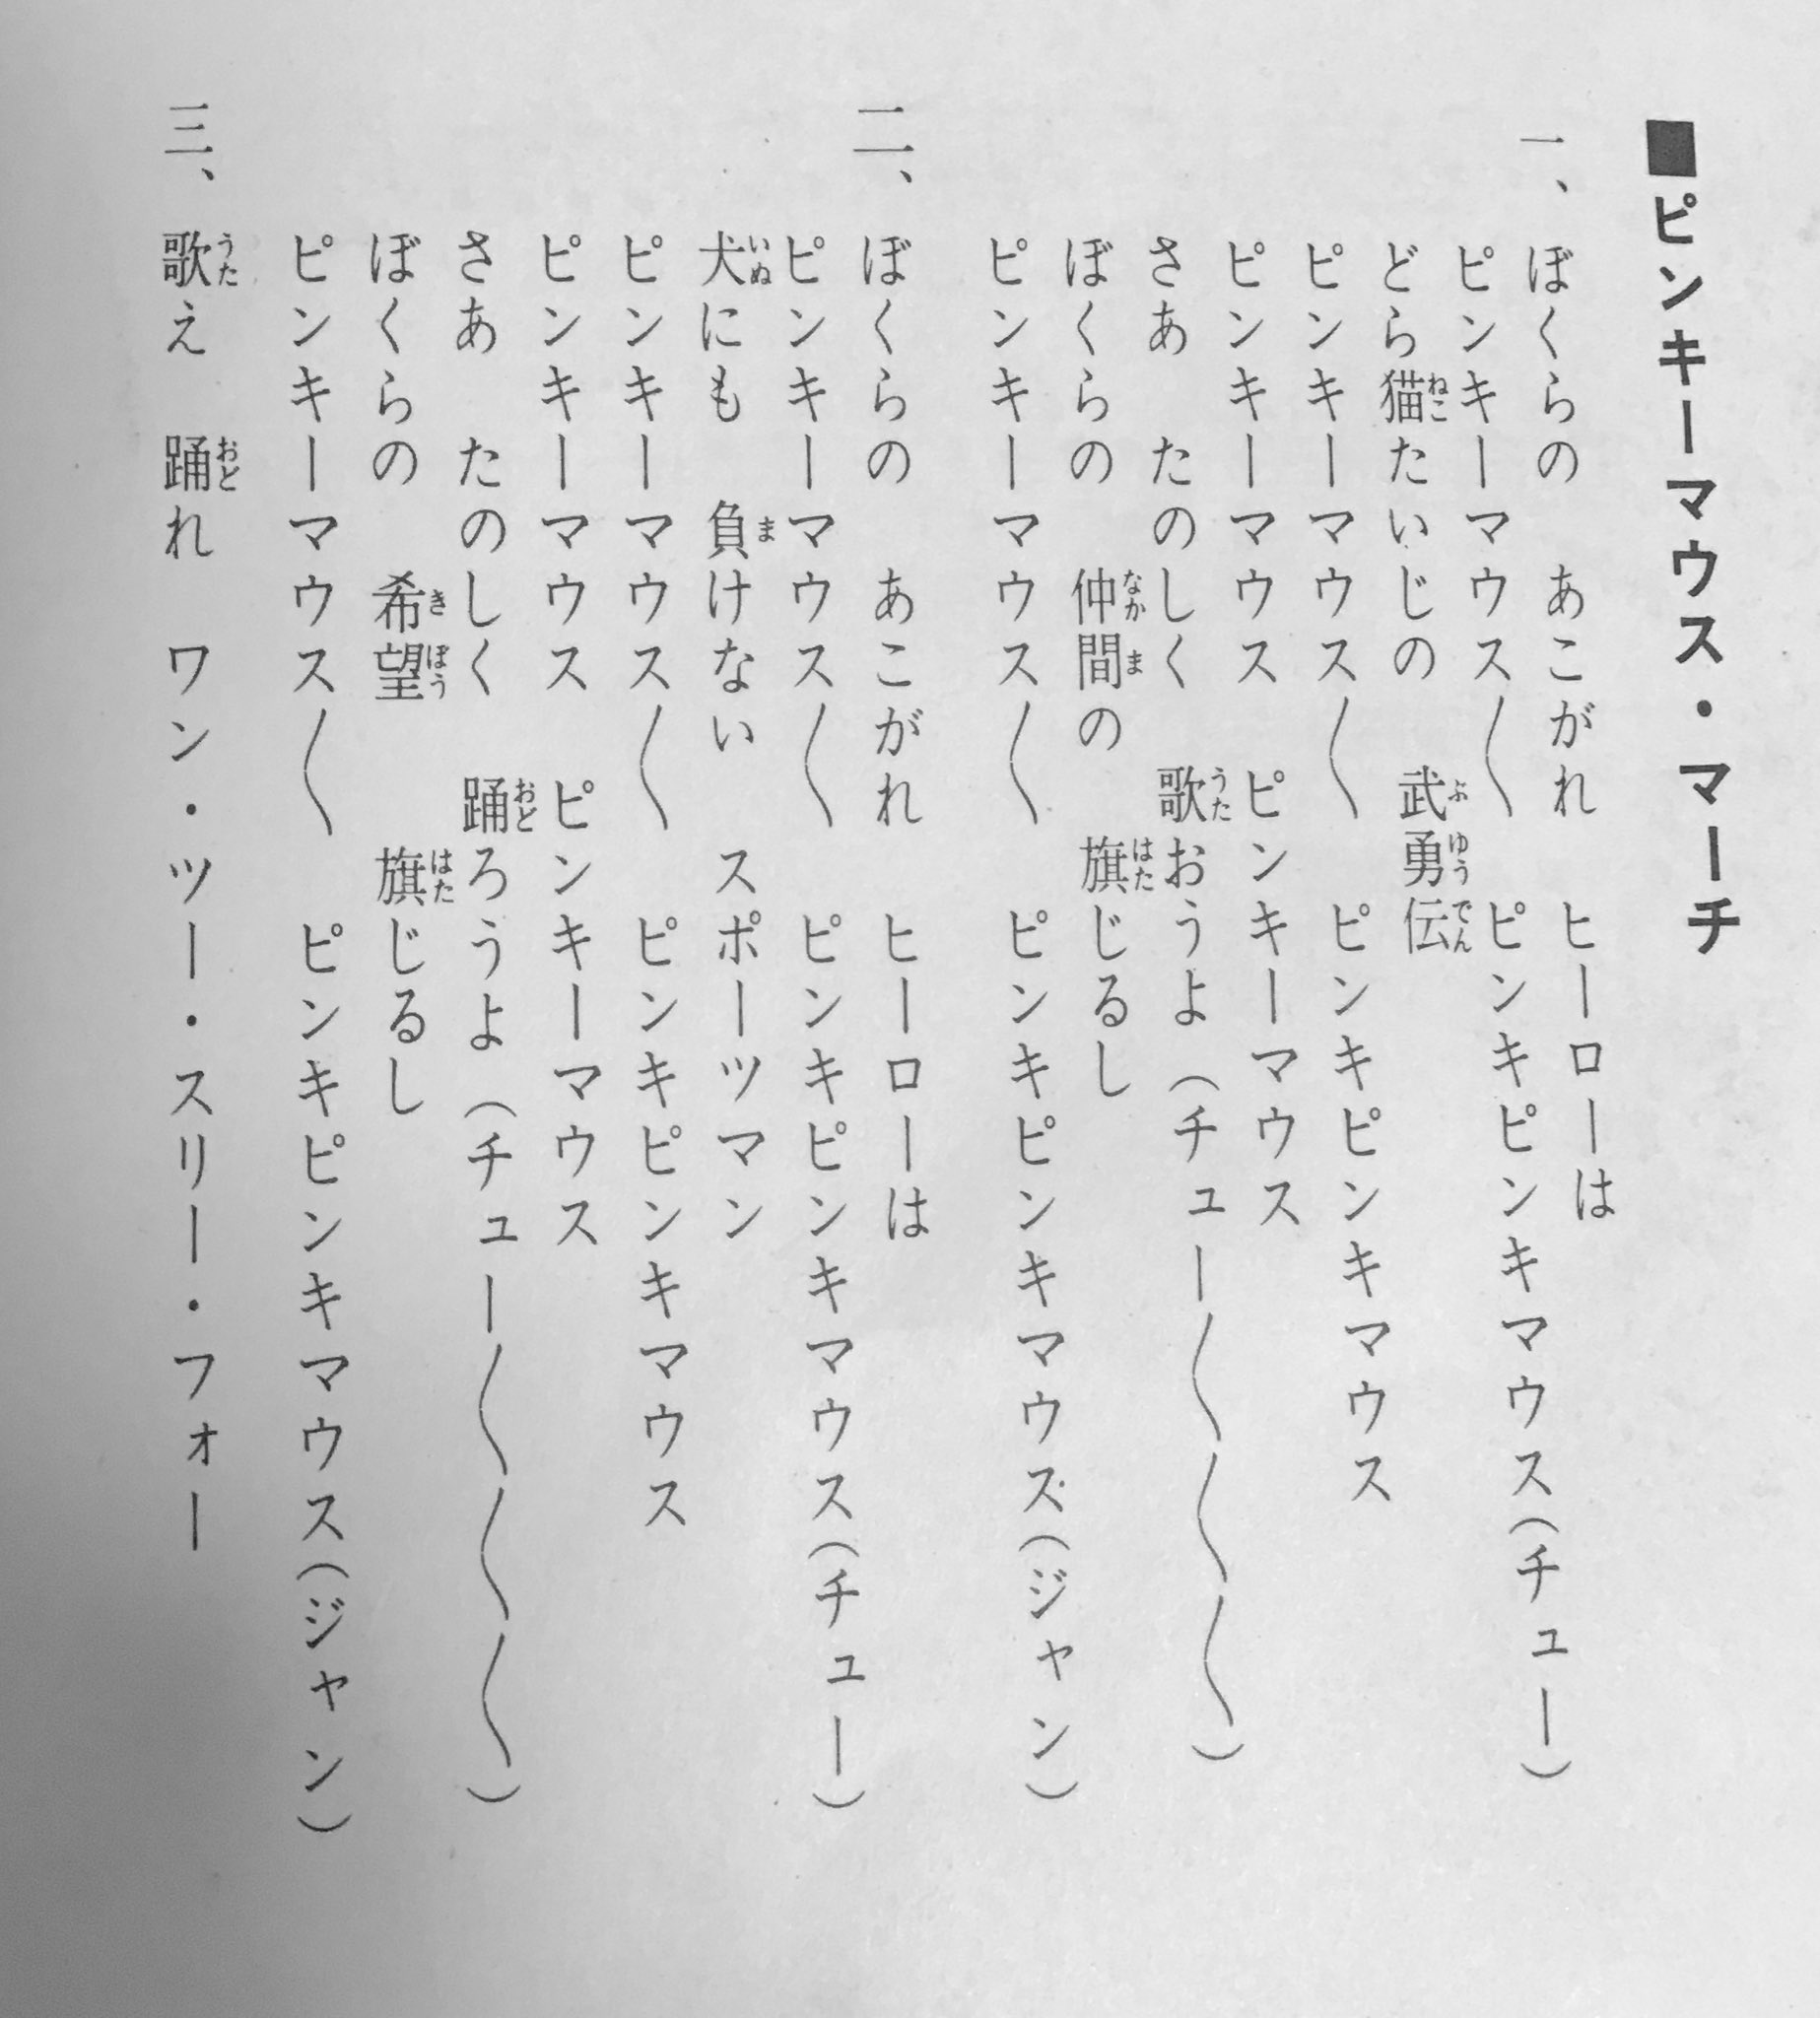 ■ピンキーマウス・マーチ
一、ぼくらの　あこがれ　ヒーローは
ピンキーマウス〳〵　ピンキピンキマウス（チュー）
どら猫たいじの　武勇伝
ピンキーマウス〳〵　ピンキピンキマウス
ピンキーマウス　ピンキーマウス
さあ　たのしく　歌おうよ（チュー〳〵〳〵〳〵）
ぼくらの　仲間の　旗じるし
ピンキーマウス〳〵　ピンキピンキマウス（ジャン）
二、ぼくらの　あこがれ　ヒーローは
ピンキーマウス〳〵　ピンキピンキマウス（チュー）
犬にも　負けない　スポーツマン
ピンキーマウス〳〵　ピンキピンキマウス
ピンキーマウス　ピンキーマウス
さあ　たのしく　踊ろうよ（チュー〳〵〳〵〳〵）
ぼくらの　希望　旗じるし
ピンキーマウス〳〵　ピンキピンキマウス（ジャン）
三、歌え　踊れ　ワン・ツー・スリー・フォー